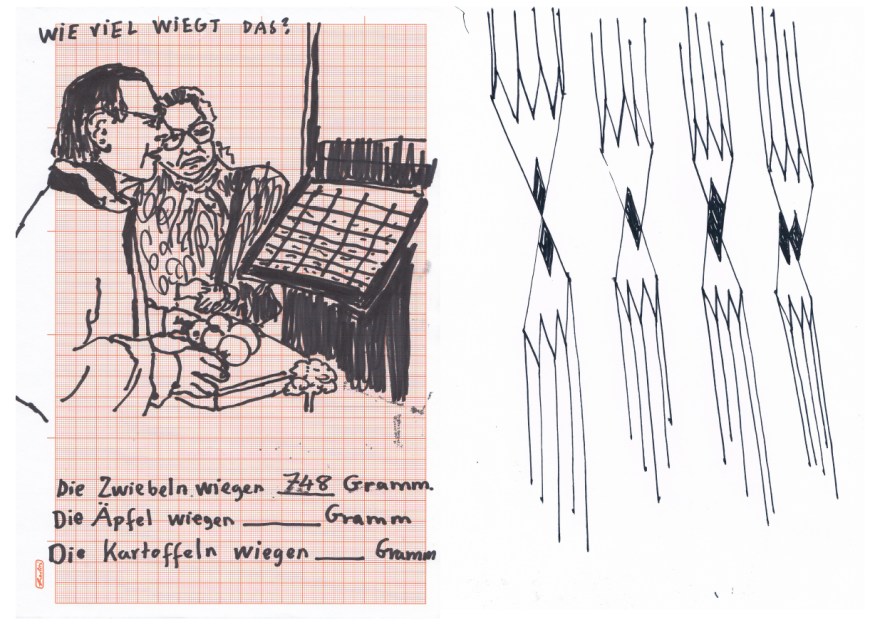 WIE VIEL WIEGT DAS?
Die Zwiebeln wiegen 748 Gramm.
Die Äpfel wiegen ______ Gramm
Die Kartoffeln wiegen ____ Gramm